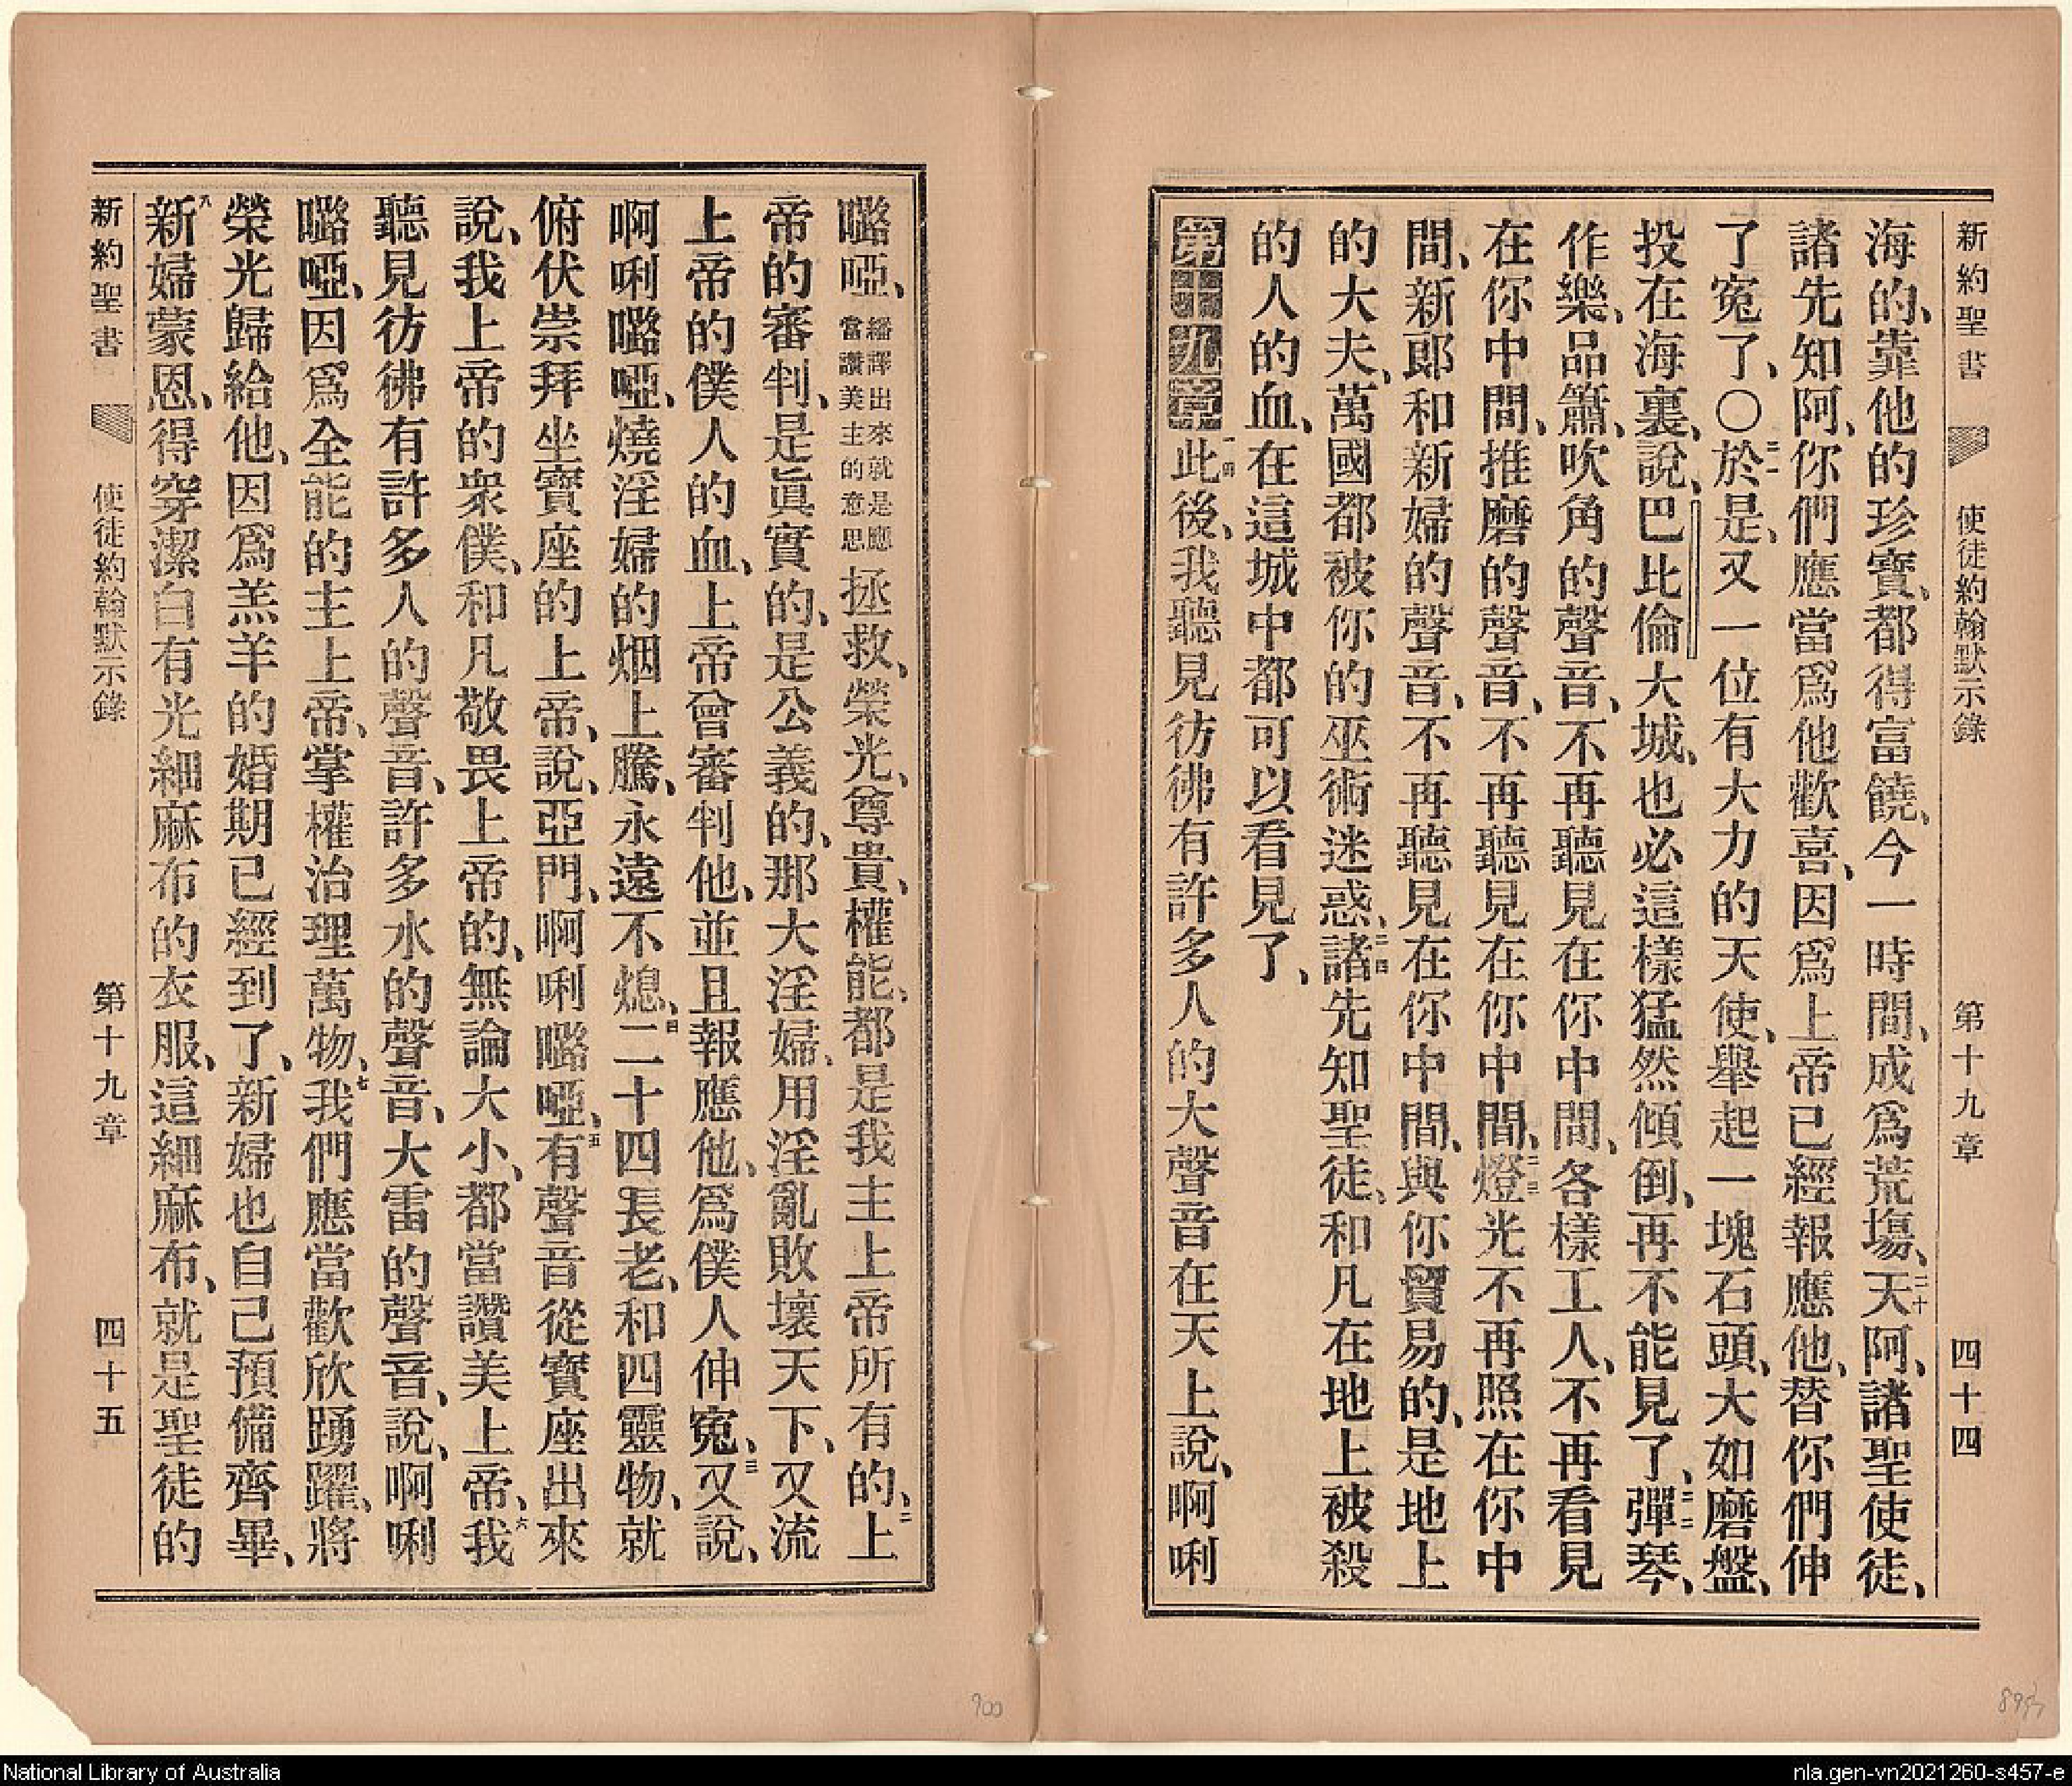 新約聖書 使徒約翰默示錄 第十九章 四十四
海的、靠他的珍寶、都得富饒、今一時間、成爲荒塲、二十天阿、諸聖使徒、
諸先知阿、你們應當爲他歡喜、因爲上帝已經報應他、替你們伸
了寃了、〇二一於是、又一位有大力的天使、舉起一塊石頭、大如磨盤、
投在海裏、說、巴比倫大城、也必這樣猛然傾倒、再不能見了、二二彈琴、
作樂、品簫、吹角的聲音、不再聽見在你中間、各樣工人、不再看見
在你中間、推磨的聲音、不再聽見在你中間、二三燈光不再照在你中
間、新郎和新婦的聲音、不再聽見在你中間、與你貿易的、是地上
的大夫、萬國都被你的巫術迷惑、二四諸先知聖徒、和凡在地上被殺
的人的血、在這城中都可以看見了、
第十九章一此後、我聽見彷彿有許多人的大聲音在天上說、啊唎
嚕啞、繙譯出來就是應當讚美主的意思拯救、榮光、尊貴、權能、都是我主上帝所有的、二上
帝的審判、是眞實的、是公義的、那大淫婦、用淫亂敗壞天下、又流
上帝的僕人的血、上帝曾審判他、並且報應他、爲僕人伸寃、三又說、
啊唎嚕啞、燒淫婦的烟上騰、永遠不熄、四二十四長老、和四靈物、就
俯伏崇拜坐寶座的上帝、說、亞門、啊唎嚕啞、五有聲音從寶座出來
說、我上帝的衆僕、和凡敬畏上帝的、無論大小、都當讚美上帝、六我
聽見彷彿有許多人的聲音、許多水的聲音、大雷的聲音、說、啊唎
嚕啞、因爲全能的主上帝、掌權治理萬物、七我們應當歡欣踴躍、將
榮光歸給他、因爲羔羊的婚期已經到了、新婦也自己預備齊畢、
八新婦蒙恩、得穿潔白有光細麻布的衣服、這細麻布、就是聖徒的
新約聖書 使徒約翰默示錄 第十九章 四十五
900
National Library of Australia
nla.gen-vn2021260-s457-e